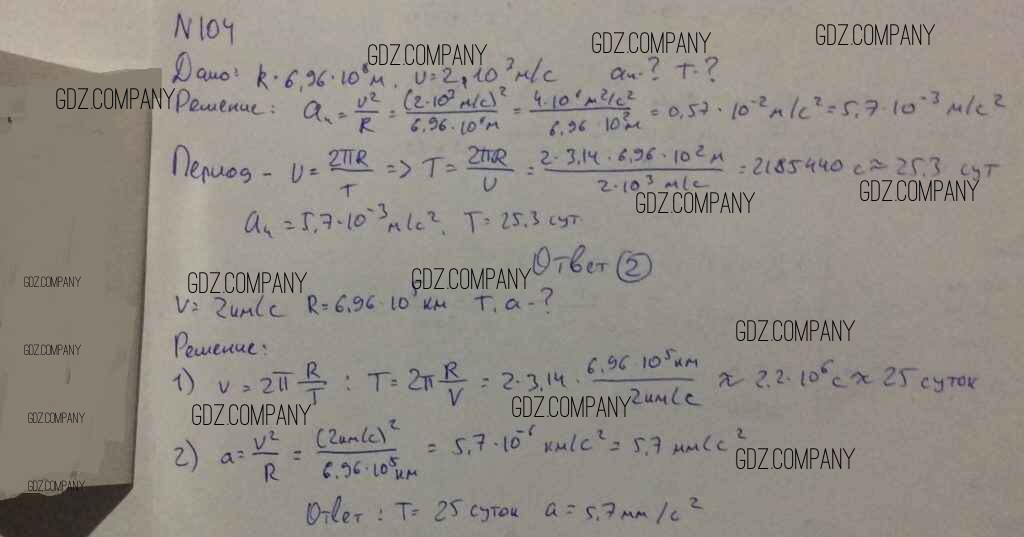 N 104
GDZ.COMPANY GDZ.COMPANY GDZ.COMPANY
Дано: R = 6,96·10⁸ м. v = 2·10³ м/с aₙ-? T-?
GDZ.COMPANY
Решение: aₙ = v²/R = (2·10³ м/с)²/6,96·10⁸ м = 4·10⁶ м²/с²/6,96·10⁸ м = 0,57·10⁻² м/с² = 5,7·10⁻³ м/с²
Период - v = 2πR/T => T = 2πR/v = 2·3,14·6,96·10² м/2·10³ м/с = 2185440 с ≈ 25.3 сут
GDZ.COMPANY GDZ.COMPANY
aₙ = 5,7·10⁻³ м/с², T = 25,3 сут.
Ответ (2)
GDZ.COMPANY GDZ.COMPANY GDZ.COMPANY
v = 2км/с R = 6,96·10⁵ км T, a -?
GDZ.COMPANY
Решение:
GDZ.COMPANY
1) v = 2π R/T : T = 2π R/v = 2·3,14· 6,96·10⁵ км/2км/с ≈ 2.2·10⁶ с ≈ 25 суток
GDZ.COMPANY GDZ.COMPANY GDZ.COMPANY
2) a = v²/R = (2км/с)²/6,96·10⁵ км = 5,7·10⁻⁶ км/с² = 5,7 мм/с²
GDZ.COMPANY
GDZ.COMPANY
Ответ: T = 25 суток a = 5,7 мм/с²